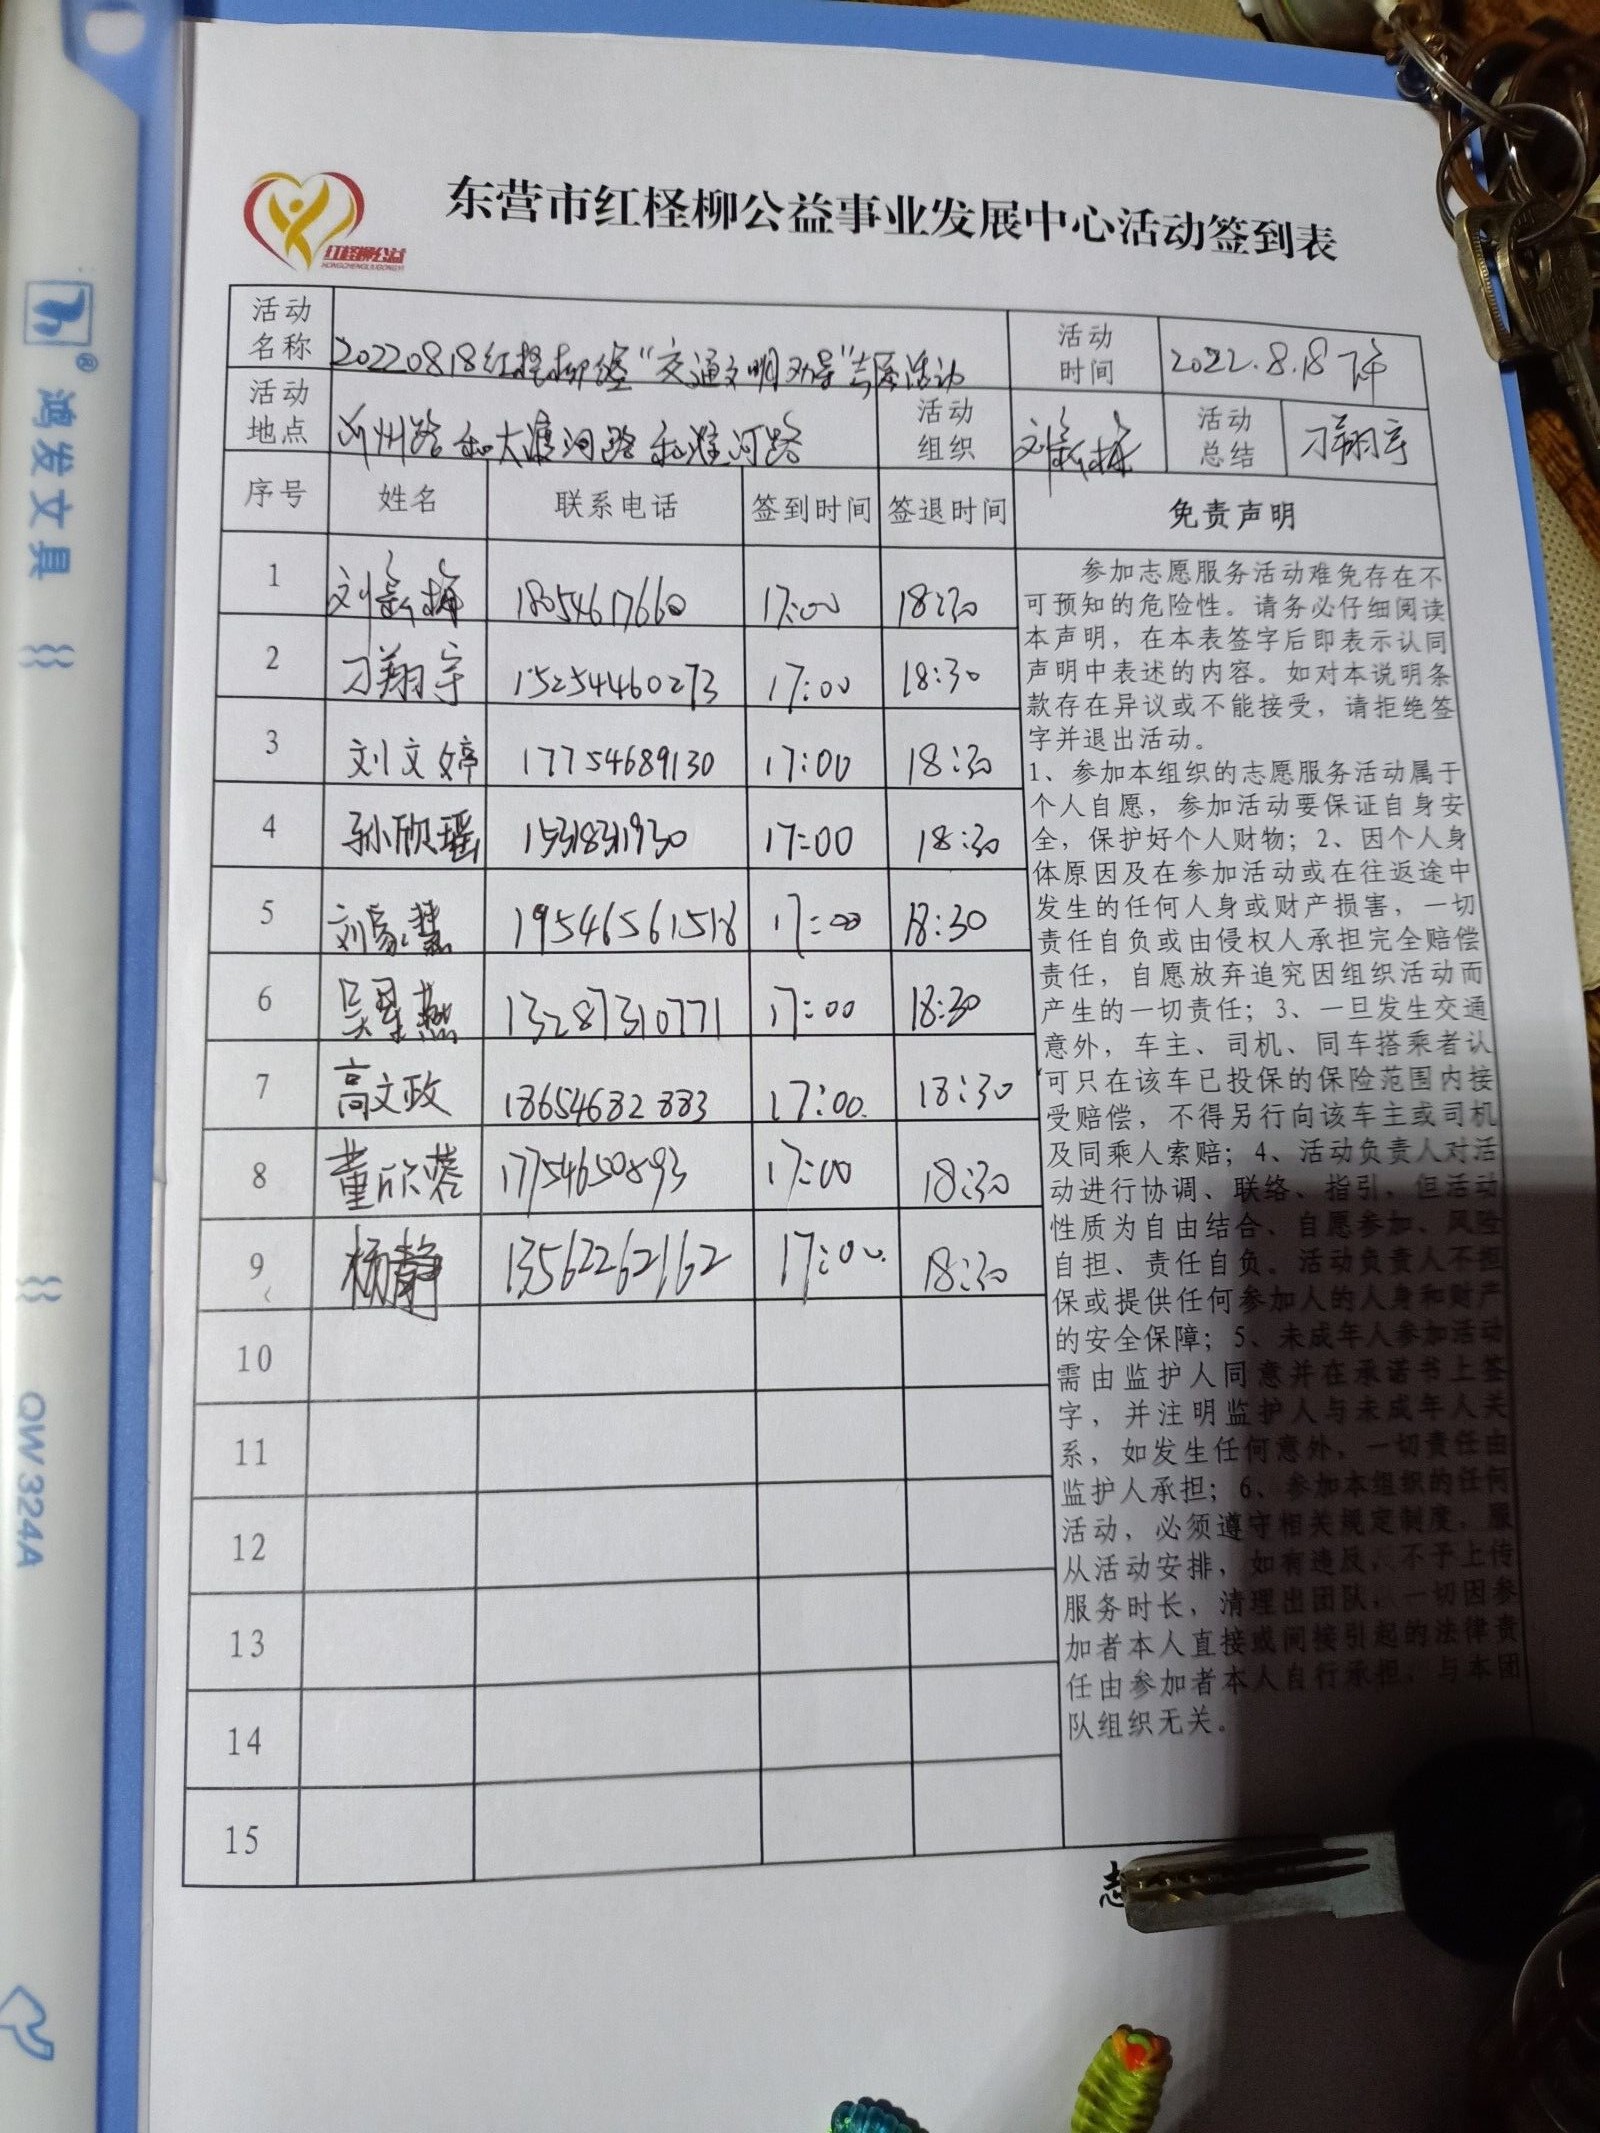 红柽柳公益
HONGCHENGLIUGONGYI
东营市红柽柳公益事业发展中心活动签到表
活动名称 20220818红柽柳“交通文明劝导”志愿活动 活动时间 2022.8.18下午
活动地点 沂州路和大渡河路和淮河路 活动组织 刘新梅 活动总结 刁翔宇
序号 姓名 联系电话 签到时间 签退时间 免责声明
1 刘新梅 18054617660 17:00 18:30
2 刁翔宇 15254460273 17:00 18:30
3 刘文婷 17754689130 17:00 18:30
4 孙欣瑶 17:00 18:30
5 刘家慧 19546561518 17:00 18:30
6 吴星燕 13287310771 17:00 18:30
7 高文政 18654682883 17:00 18:30
8 董欣蓉 17754650893 17:00 18:30
9 杨静 13562262162 17:00 18:30
10
11
12
13
14
15
参加志愿服务活动难免存在不
可预知的危险性。请务必仔细阅读
本声明，在本表签字后即表示认同
声明中表述的内容。如对本说明条
款存在异议或不能接受，请拒绝签
字并退出活动。
1、参加本组织的志愿服务活动属于
个人自愿，参加活动要保证自身安
全，保护好个人财物；2、因个人身
体原因及在参加活动或在往返途中
发生的任何人身或财产损害，一切
责任自负或由侵权人承担完全赔偿
责任，自愿放弃追究因组织活动而
产生的一切责任；3、一旦发生交通
意外，车主、司机、同车搭乘者认
可只在该车已投保的保险范围内接
受赔偿，不得另行向该车主或司机
及同乘人索赔；4、活动负责人对活
动进行协调、联络、指引，但活动
性质为自由结合、自愿参加、风险
自担、责任自负。活动负责人不担
保或提供任何参加人的人身和财产
的安全保障；5、未成年人参加活动
需由监护人同意并在承诺书上签
字，并注明监护人与未成年人关
系，如发生任何意外，一切责任由
监护人承担；6、参加本组织的任何
活动，必须遵守相关规定制度，服
从活动安排，如有违反，不予上传
服务时长，清理出团队，一切因参
加者本人直接或间接引起的法律责
任由参加者本人自行承担，与本团
队组织无关。
志
鸿发文具
QW324A